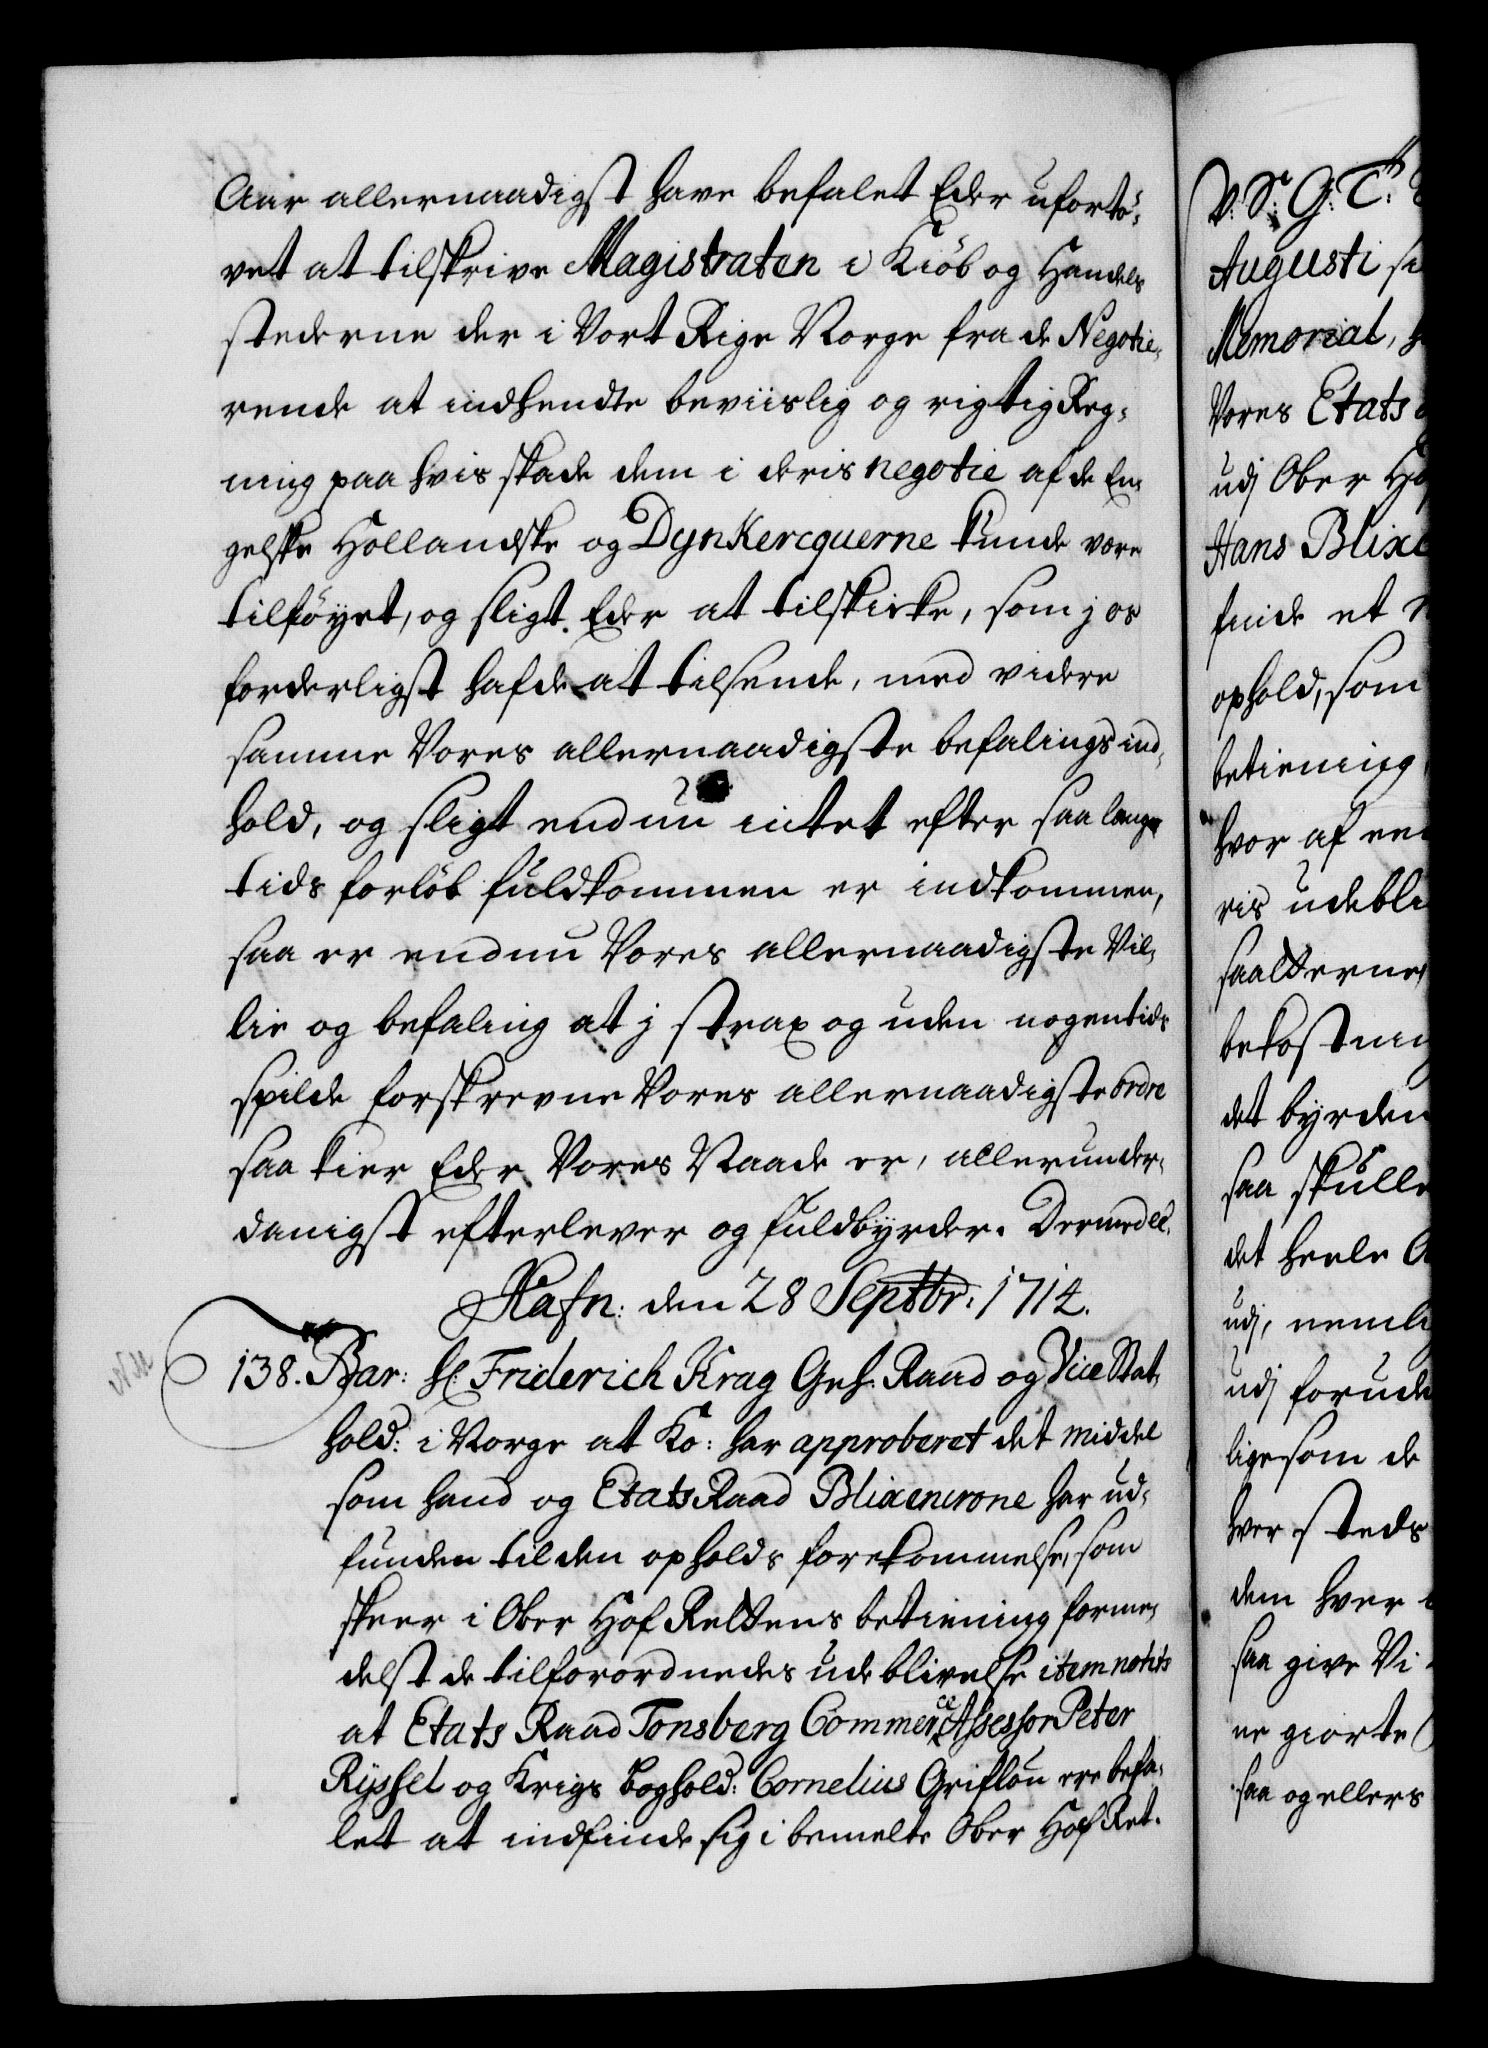 Aar allernaadigst have befalet Eder ufortø-
vet at tilskrive Magistraten i Kiöb og Handels
stederne der i Vort Rige Norge fra de Negotie-
rende at indhendte beviislig og rigtig Reg-
ning paa hvis skade dem i deris negotie af de En-
gelske Hollandske og Dynkercquerne kunde være
tilföyet, og sligt Eder at tilskicke, som j os
forderligst hafde at tilsende, med videre
samme Vores allernaadigste befalings ind-
hold, og sligt endnu intet efter saa lang
tids forlöb fuldkommen er indkommen,
saa er endnu Vores allernaadigste Vil-
lie og befaling at j strax og uden nogen tids
spilde forskrevne Vores allernaadigste ordre
saa kier Eder Vores Naade er, allerunder-
danigst efterlever og fuldbyrder. Dermed etc.
Hafn: den 28 Septbr: 1714.
138. Bar: Hl: Friderich Krag Geh. Raad og Vice Stat-
hold: i Norge at Ko: har approberet det middel
som hand og Etats Raad Blixencrone har ud-
funden til den opholds forekommelse, som
skeer i Ober Hof Rettens betiening forme-
delst de tilforordnedes udeblivelse item notits
at Etats Raad Tonsberg Commerce Assessor Peter
Ryssel og Krigs boghold: Cornelius Griflou ere befa-
let at indfinde sig i bemelte Ober Hof Ret.
V: S: G: T:
Augusti
Memorial,
Vores Etats
udj Ober
Hans
finde et
ophold, som
betiening
hvor af
ris
saalterne
det
saa skulle
det heele
udj,
udj
ligesom de
hver steds
dem hver
saa give Vi
ne giorte
saa og ellers